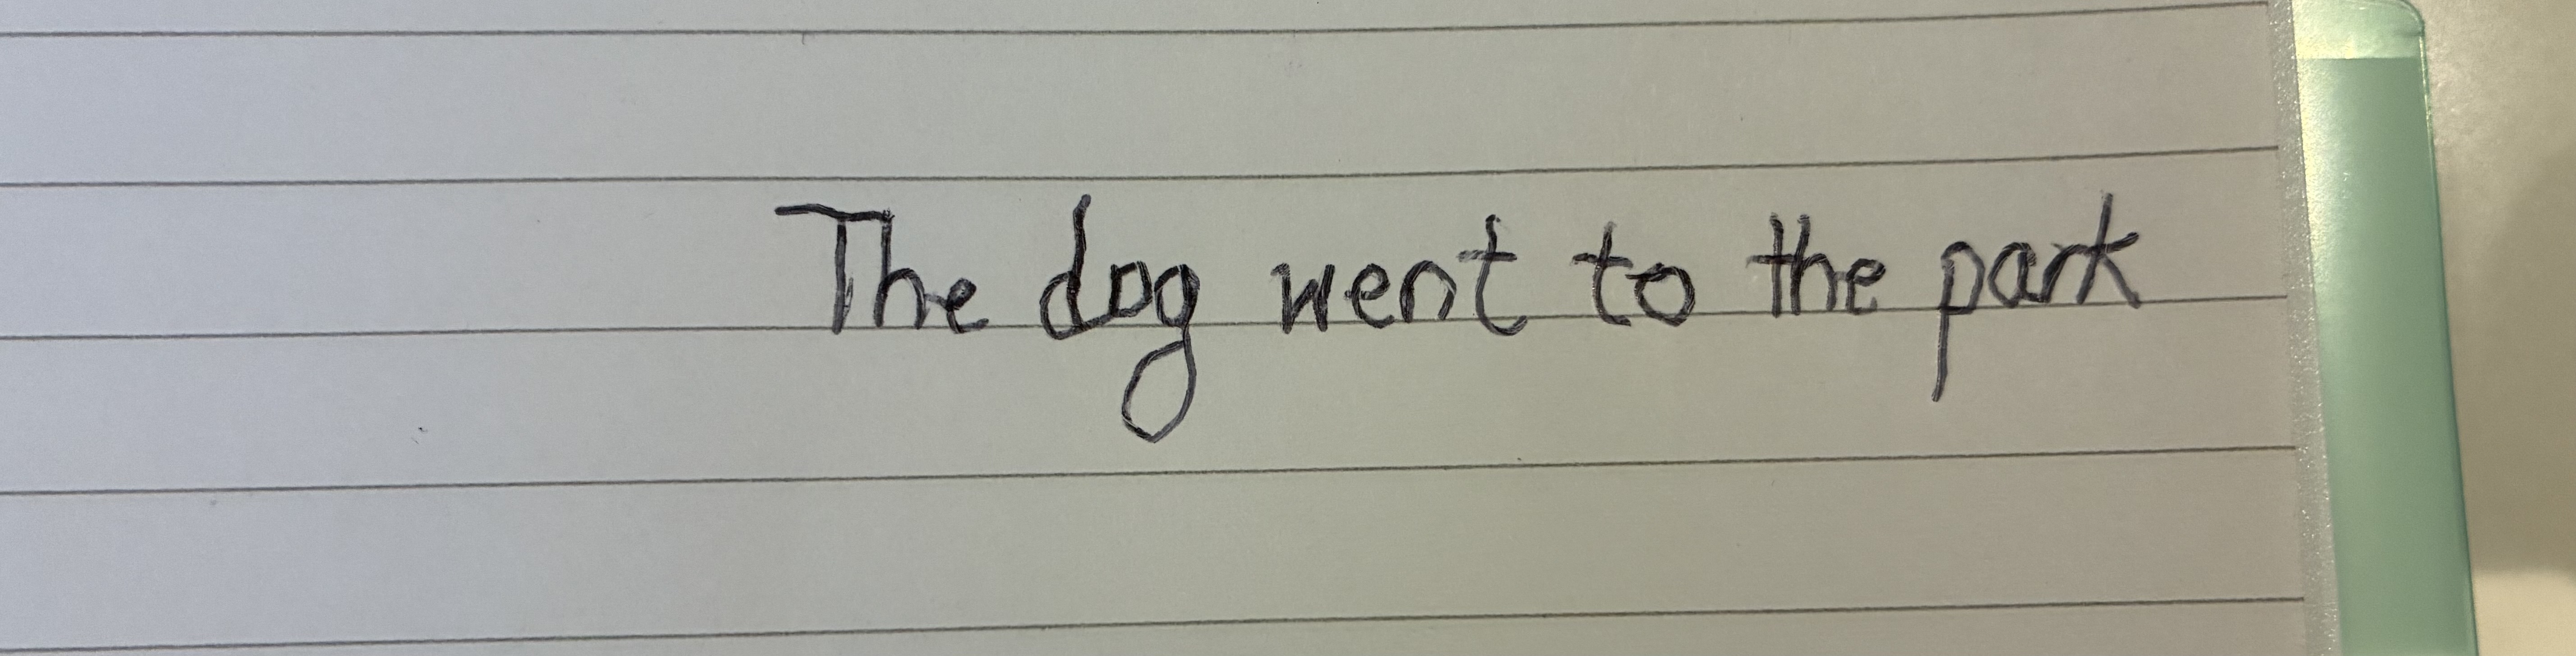 The dog went to the park